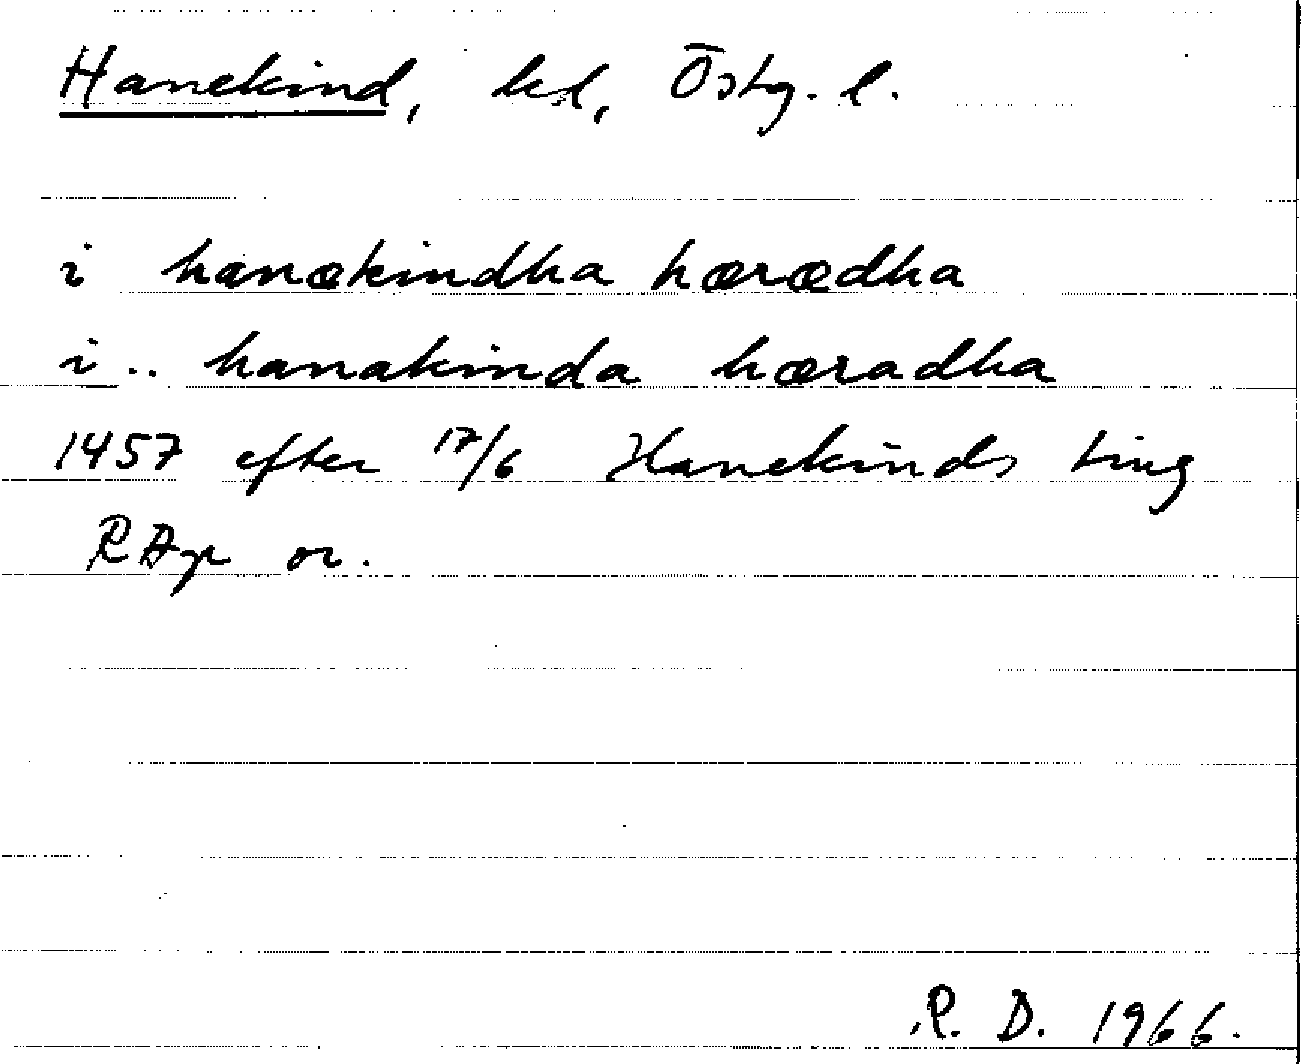 Hanekind, hd, Östg. l.
i hanækindha hæræedha
i .. hanakinda hæradha
1457 efter 17/6 Hanekinds ting
RAp or.
R. D. 1966.